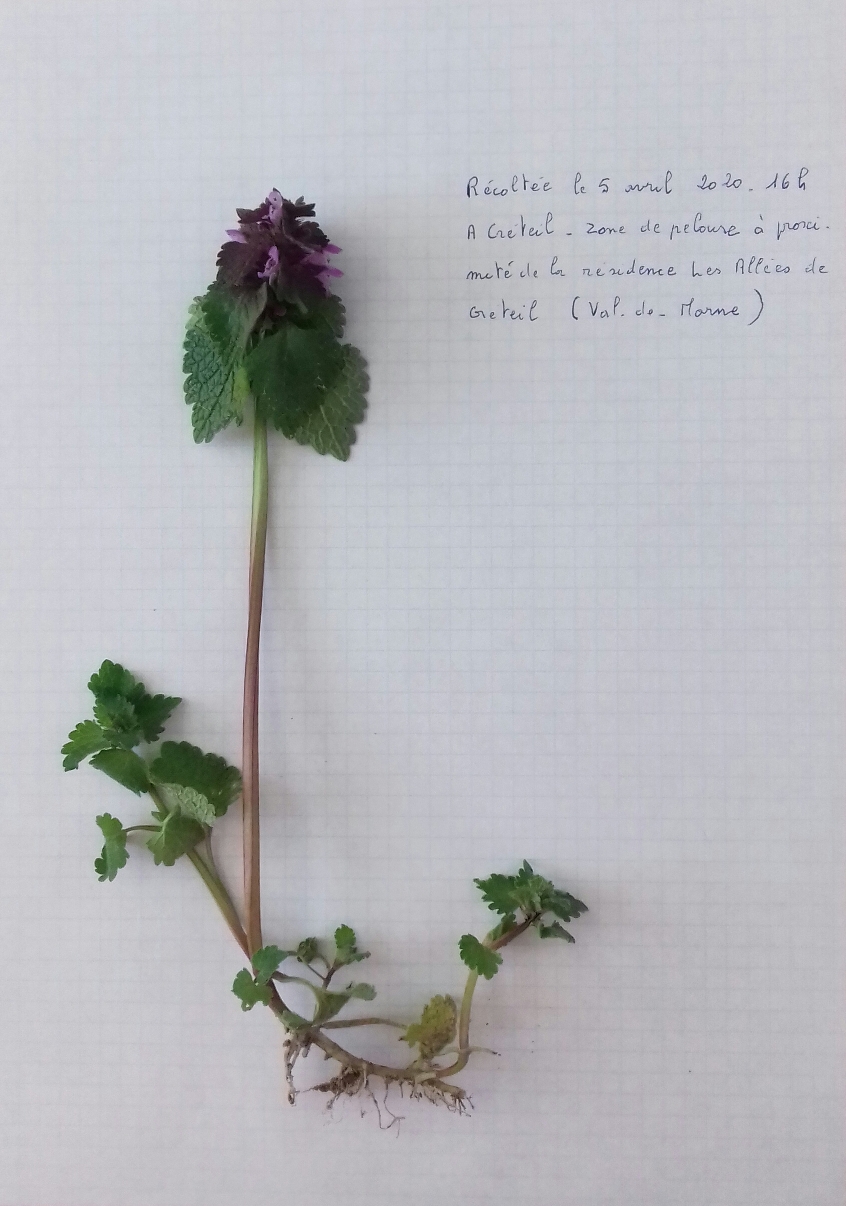 Récoltée le 5 avril 2020. 16h
A Créteil - zone de pelouse à proxi-
mité de la résidence Les Allées de
Créteil (Val-de-Marne)